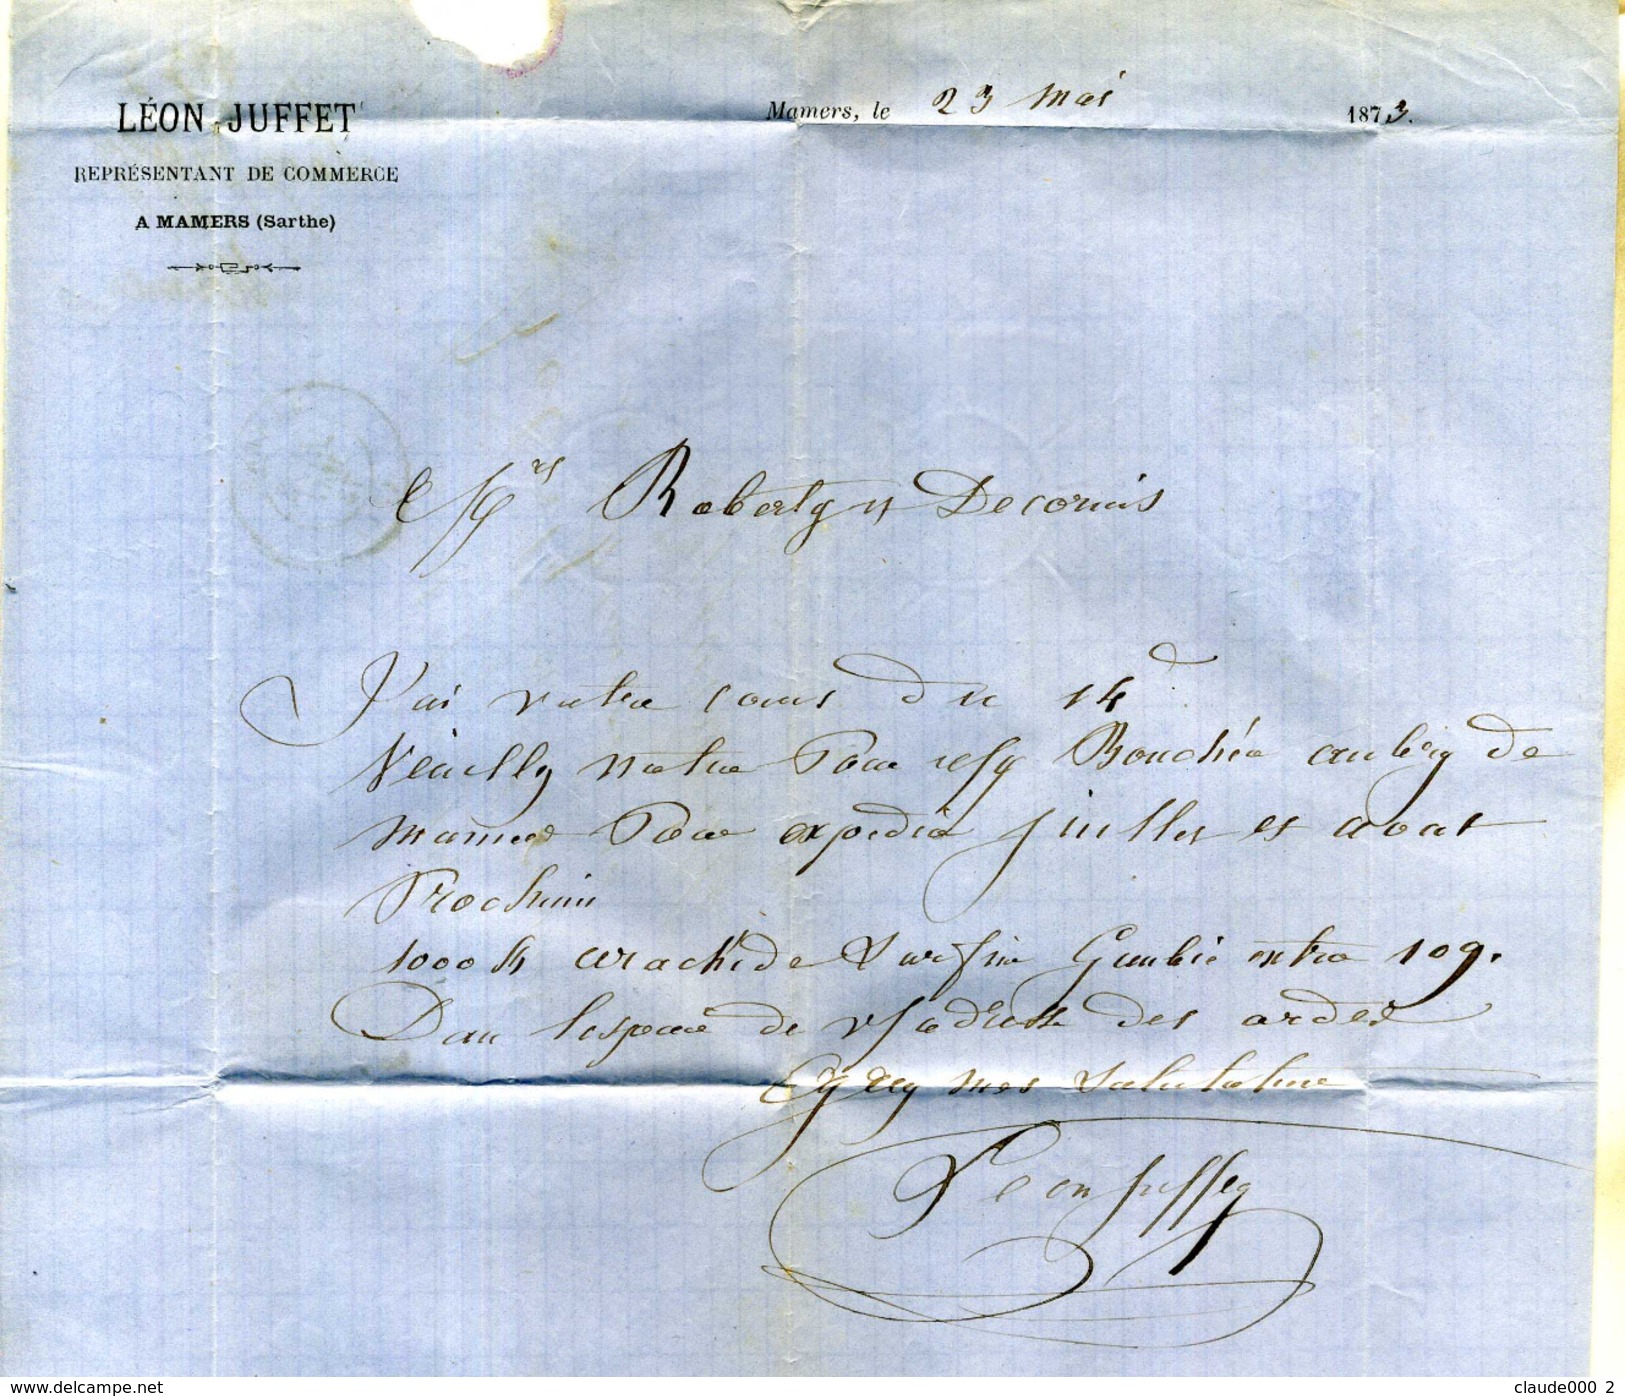 LÉON JUFFET
REPRÉSENTANT DE COMMERCE
A MAMERS (Sarthe)
Mamers, le 23 Mai 1873.
Mrs Roberty et Decormis
J'ai votre cours du 14 Ct
Veuillez notter Pour Bouchée de
Mamers Pour expedié juillet et aout
Prochain
1000 K arachide Surfine Gambie entre 109.
Dan lespoir de des ordres
mes Salutation
Leon Juffet
claude000_2